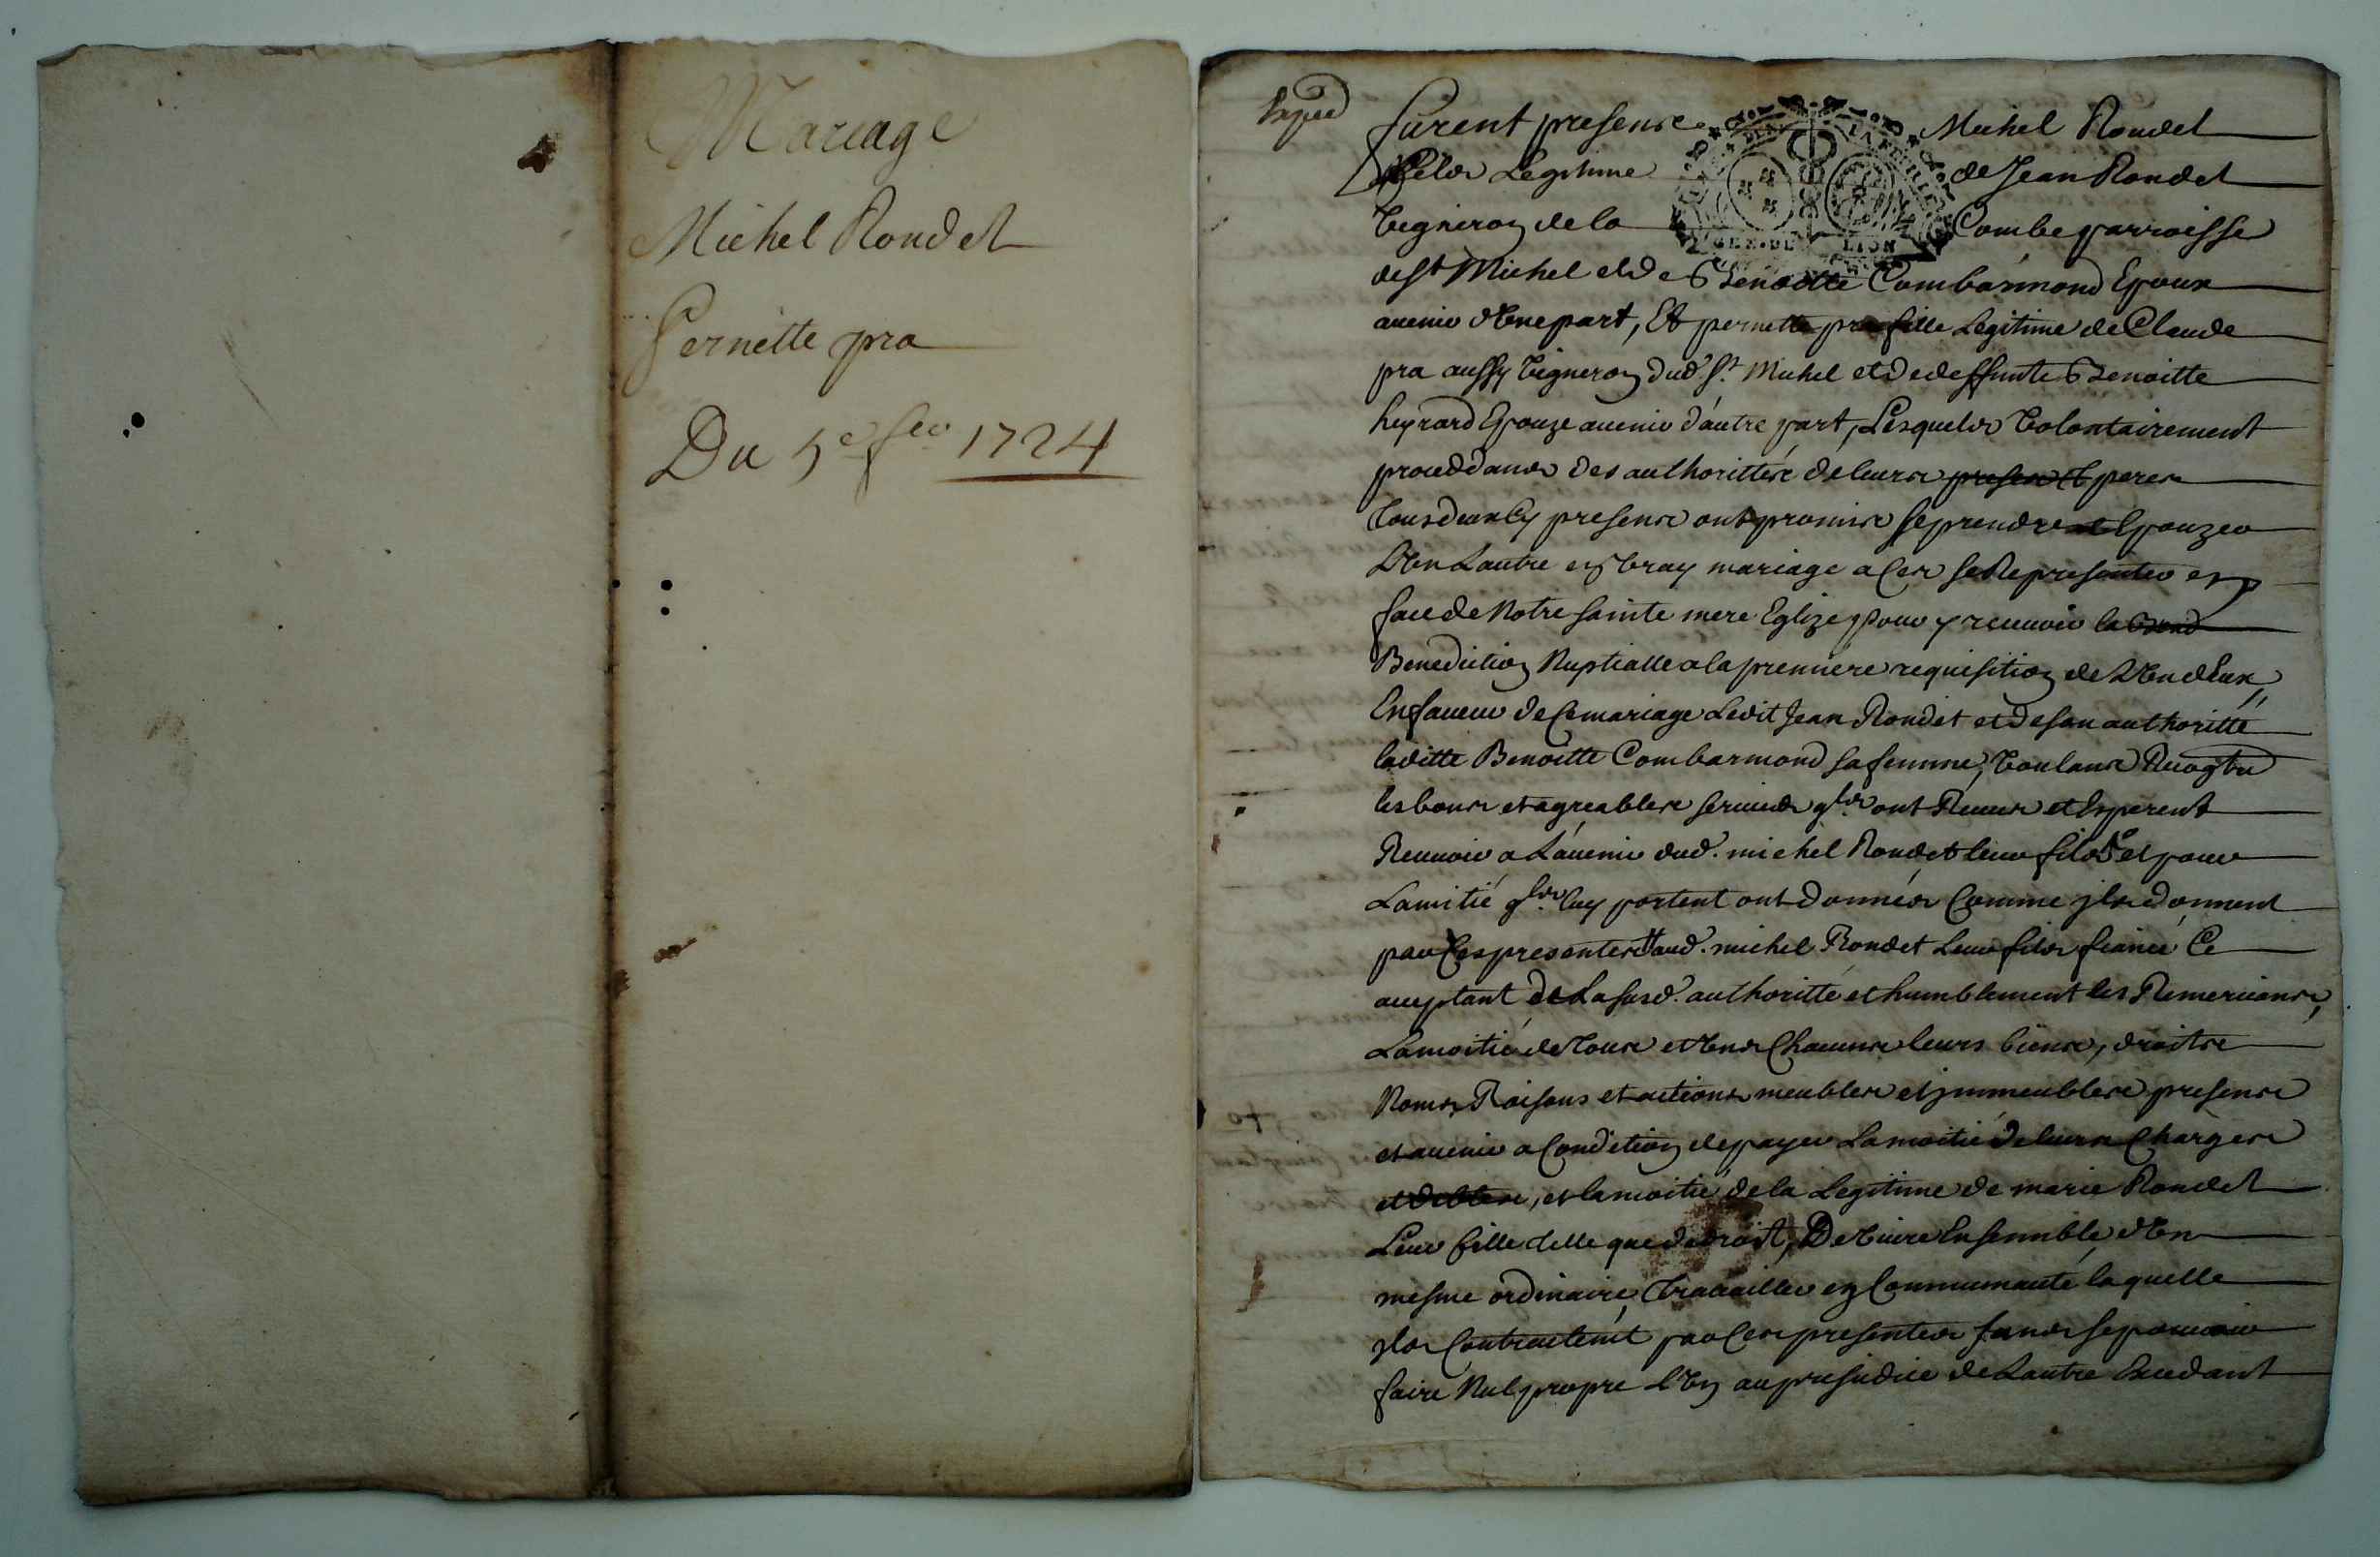 Mariage
Michel Rondet
Pernette pra
Du 5e feo 1724
Exped
furent presens Michel Rondet
fils Legitime de Jean Rondet
Vigneron de la Combe parroisse
de St Michel et de Benoitte Combarmond Epoux
avenir d'Une part, Et pernette pra fille Legitime de Claude
pra aussy Vigneron dud. St. Michel et de deffunte Benoitte
heyrard Epouze avenir d'autre part, Lesquels Volontairement
proceddans des authorittés de leurs presens Et peres
tous deux Cy presens ont promis se prendre et Epouzer
L'Un Lautre en Vray mariage a Ces se Representer en
face de Notre sainte mere Eglize pour y recevoir la Bened
Benediction Nuptialle a la premiere requisition de L'Un d'Eux,
En faveur de Ce mariage Ledit Jean Rondet et de son authoritté
laditte Benoitte Combarmond sa femme, Voulans
les bons et agreables services qls. ont Receus et Esperent
Recevoir a L'avenir dud. michel Rondet leur fils et pour
Lamitié qls. luy portent ont donnés Comme jls donnent
par Ces presentes aud. michel Rondet Leur fils fiancé Ce
acceptant de La susd. authoritté et humblement les Remerciant,
La moitié de Tous et Uns Chacuns leurs biens, droits
Noms, Raisons et actions meubles et jmmeubles presens
et avenir a Condition de payer La moitié de leurs Charges
et debtes, et la moitié de la Legitime de marie Rondet
Leur fille telle que de droit, De Vivre Ensemble d'Un
mesme ordinaire, Travailler en Communauté laquelle
jls Contractent par Ces presentes sans se pouvoir
faire Nul propre L'Un au prejudice de Lautre Excedant
GEN. DE LION